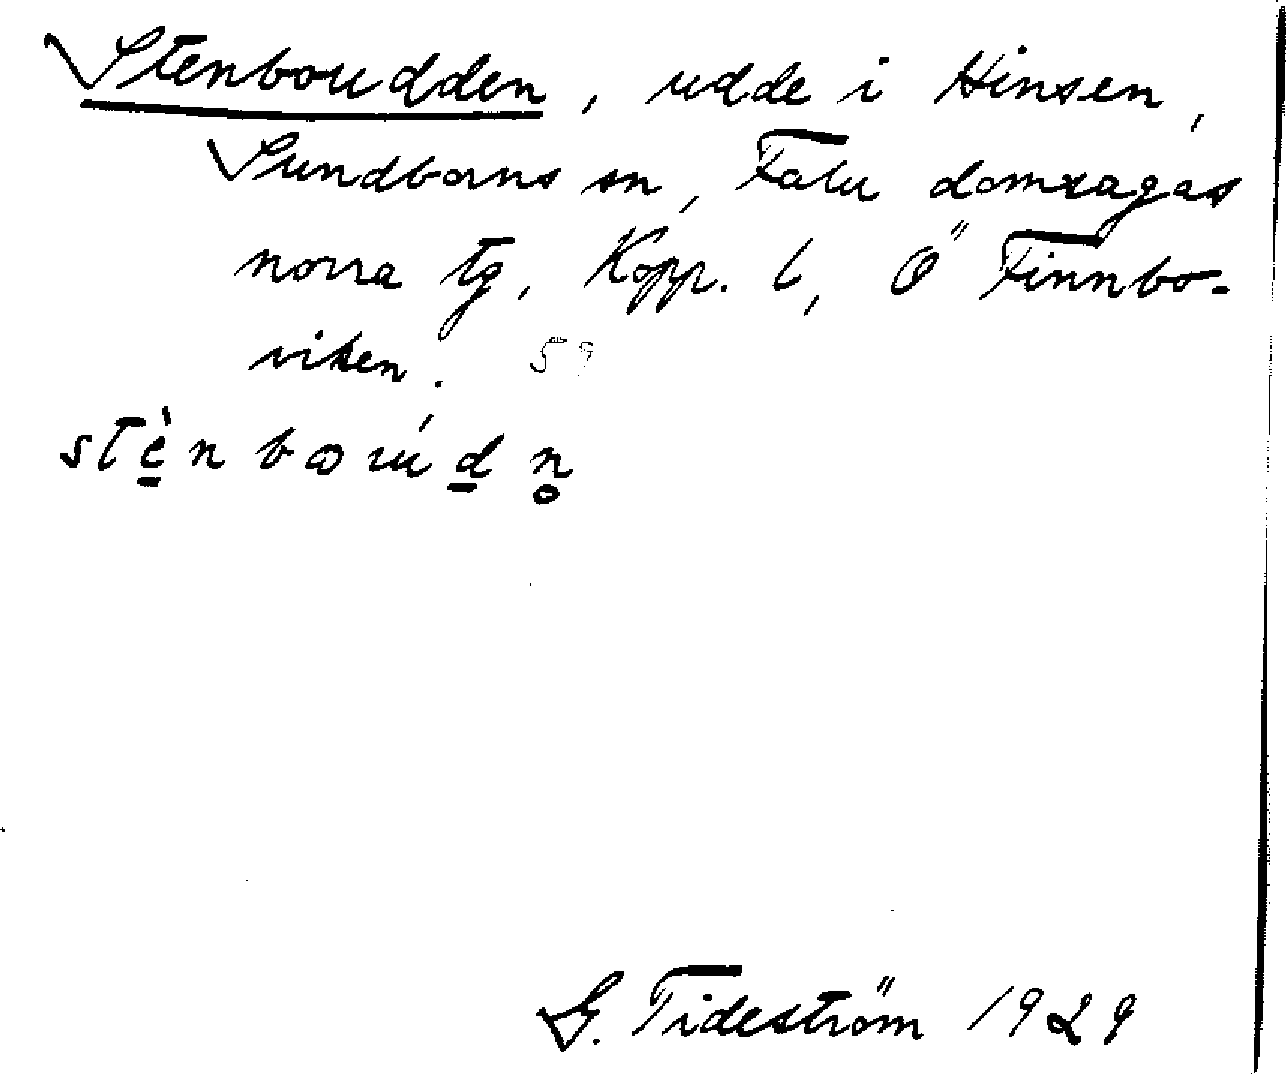 Stenboudden, udde i Hinsen,
Sundborns sn, Falu domsagas
norra tg, Kopp. l, Ö Finnbo-
viken. 59
stè̱nbωúḏn̥
G. Tideström 1929